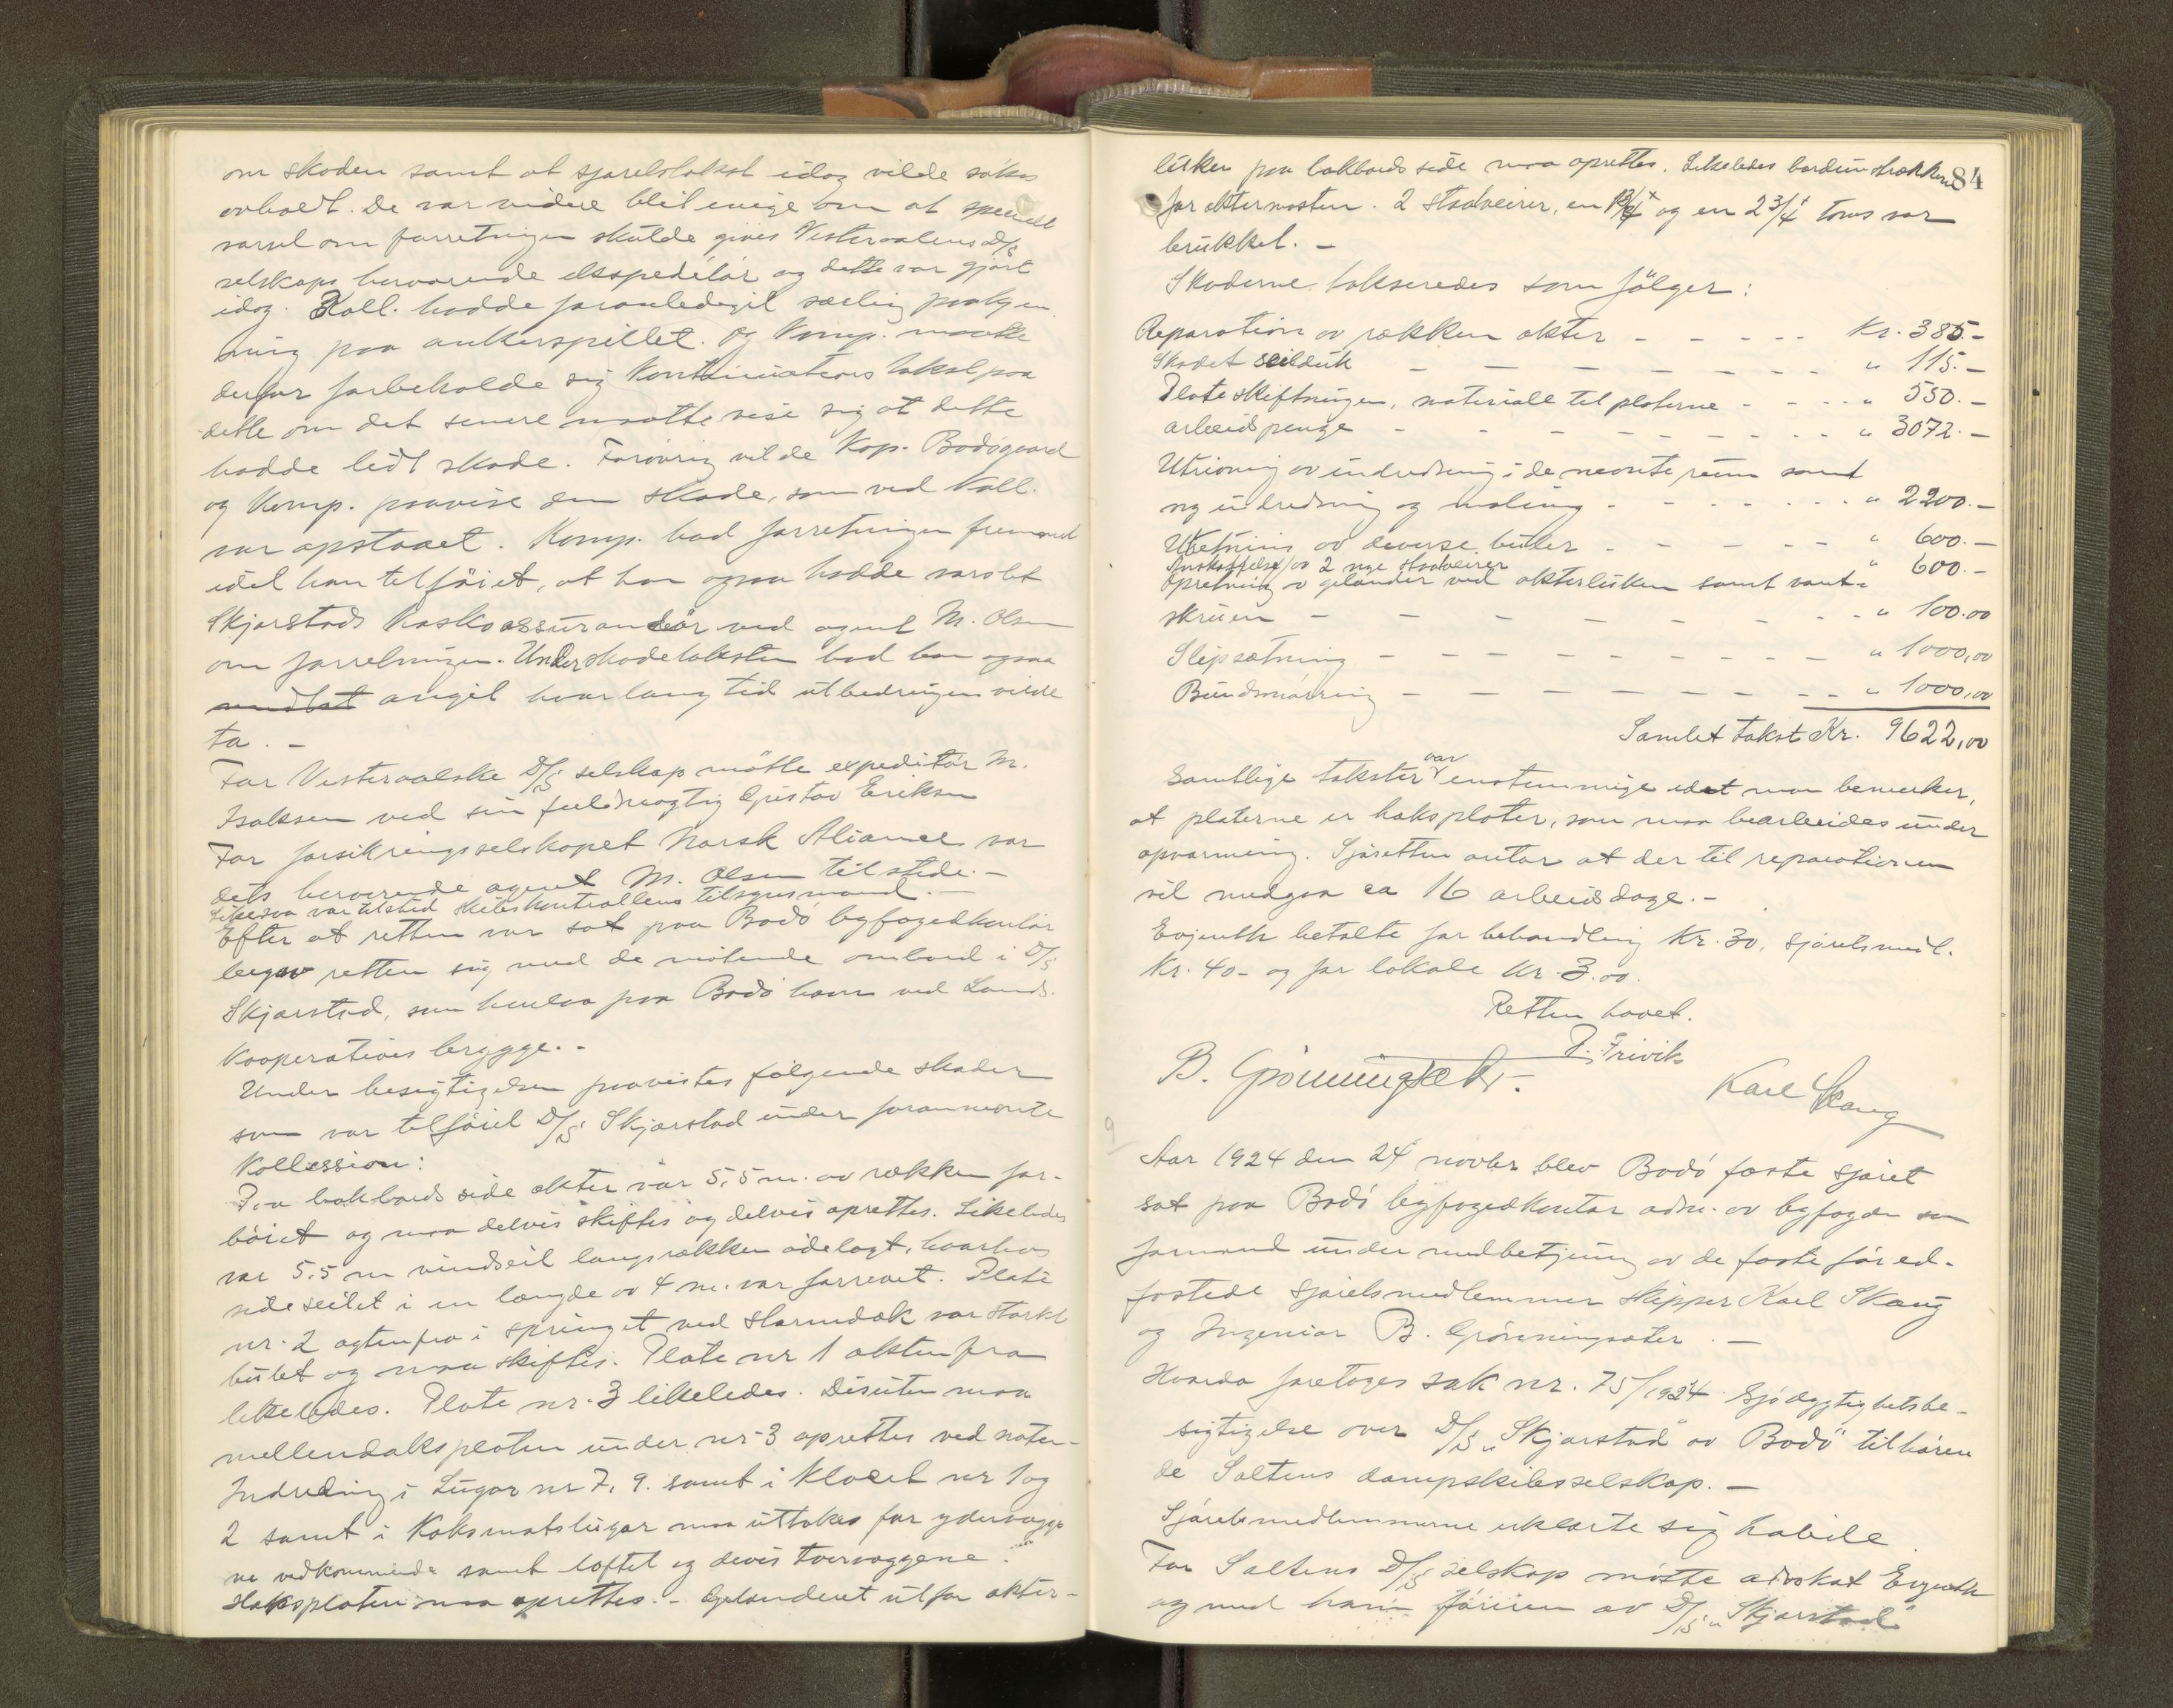 om skaden samt at sjøretstakst idag vilde søkes
avholdt. De var videre blit enige om at specielt
varsel om forretningen skulde gives Vesteraalens D/S
selskaps herværende ekspeditør og dette var gjort
idag. Koll. hadde foranlediget særlig paakjen
ning paa ankerspillet. Og Komp. maatte
derfor forbeholde sig Kontinuations takst paa
dette om det senere maatte vise sig at dette
hadde lidt skade. Forøvrig vilde Kap. Bodøgaard
og Komp. paavise den skade, som ved Koll.
var opstaaet. Komp. bad forretningen fremmed
idet han tilføiet, at han ogsaa hadde varslet
Skjerstads Kaskoassurandør ved agent M. Olsen
om forretningen. Under skadetaksten bad han ogsaa
angit hvor lang tid utbedringen vilde
ta. -
For Vesteraalske D/S selskap møtte expeditør M.
Isaksen ved sin fuldmægtig Gustav Eriksen
For forsikringsselskapet Norsk Aliance var
dets herværende agent M. Olsen tilstede. -
Likesaa var tilsted Skibskontrollens tilsynsmand. -
Efter at retten var sat paa Bodø byfogedkontor
begav retten sig med de møtende ombord i D/S
Skjerstad, som henlaa paa Bodø havn ved Lands.
Kooperativs brygge. -
Under besigtigelsen paavistes følgende skader
som var tilføiet D/S Skjerstad under forannævnte
Kollission:
Paa bakbords side akter var 5,5 m. av rækken for-
bøiet og maa delvis skiftes og delvis oprettes. Likeledes
var 5,5 m vindseil langs rækken ødelagt, hvorhos
sideseilet i en længde av 4 m. var forrevet. Plate
nr. 2 agtenfra i springet ved stormdæk var sterkt
bulet og maa skiftes. Plate nr 1 aktenfra
likeledes. Plate nr. 3 likeledes. Desuten maa
mellendæksplaten under nr 3 oprettes ved naten-
Indreding i Lugar nr 7, 9. samt i Kloset nr 1 og
2 samt i Koksmatslugar maa uttakes for ydervægge
ne vedkommende samt loftet og devis tvervæggene.
Hæksplaten maa oprettes. - Gelenderet utfor akter-
84
luken paa bakbords side maa oprettes. Likeledes bardunstrækkerne
for aktermasten. 2 staalveirer, en og en 2 3/4 toms var
brukket. -
Skaderne takseredes som følger:
Reparation av rækken akter - - - - - Kr. 385.-
Skadet seilduk - - - - - - - - „ 115.-
Plateskiftningen, materiale til platerne - - - - „ 550.-
arbeidspenge - - - - - - - - - „ 3072.-
Utrivning av indredning i de nævnte rum samt
ny indredning og maling - - - - - - - „ 2200.-
Utretning av diverse buler - - - - - „ 600.-
Anskaffelse av 2 nye staalveirer „ 600.-
Opretning av gelænder ved akterluken samt vant-
skruen - - - - - - - - - „ 100.00
Slipsætning - - - - - - - - - - „ 1000,00
Bundsmøring - - - - - - - - - „ 1000,00
Samlet takst Kr. 9622,00
Samtlige takster var enstemmige idet man bemerker,
at platerne er hæksplater, som maa bearbeides under
opvarming. Sjøretten antar at der til reparationen
vil medgaa ca 16 arbeidsdage. -
Evjenth betalte for behandling Kr. 30, sjøretsmedl.
Kr. 40- og for lokale Kr. 3.00.
Retten hævet.
P. Frivik
B. Grønningsæter.
Karl Skaug
Aar 1924 den 24 novbr. blev Bodø faste sjøret
sat paa Bodø byfogedkontor adm. av byfogden som
formand under medbetjening av de faste før ed-
fæstede sjøretsmedlemmer skipper Karl Skaug
og Ingeniør B. Grønningsæter. -
Hvorda foretoges sak nr. 75/1924 Sjødygtighetsbe-
sigtigelse over D/S „Skjerstad" av Bodø" tilhøren
de Saltens dampskibsselskap. -
Sjøretsmedlemmerne erklærte sig habile
For Saltens D/S selskap møtte advokat Evjenth
og med ham føreren av D/S „Skjerstad"